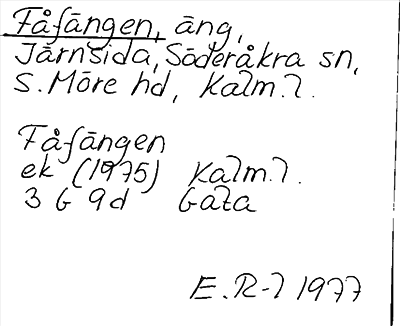 Fåfängen, äng,
Järnsida, Söderåkra sn,
S. Möre hd, Kalm. l.
Fåfängen
ek (1975) Kalm. l.
3 G 9d Gata
E. R-l 1977